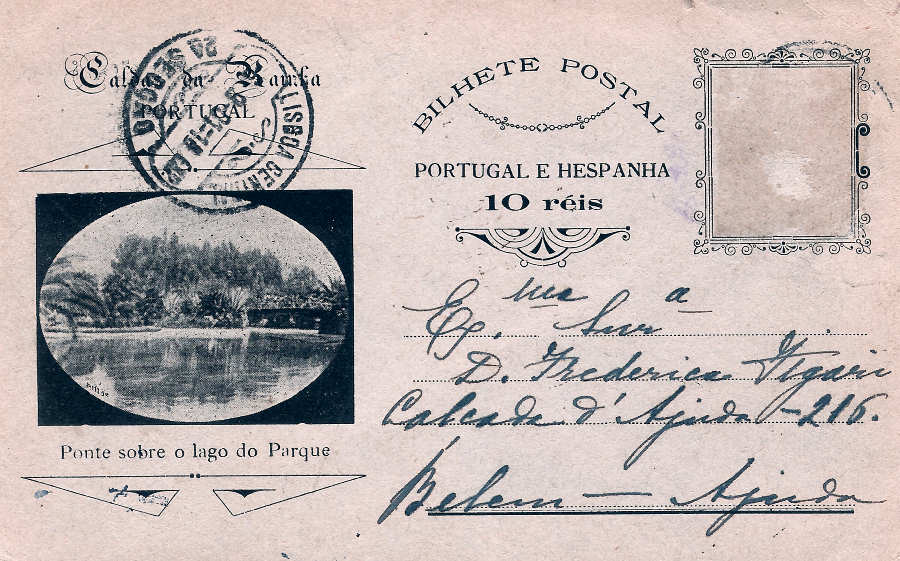 Caldas da Rainha
PORTUGAL
LISBOA CENTRAL
BILHETE POSTAL
PORTUGAL E HESPANHA
10 réis
Ponte sobre o lago do Parque
Ex.ma Snr.a
D. Frederica
Calçada d'Ajuda - 216.
Belem — Ajuda